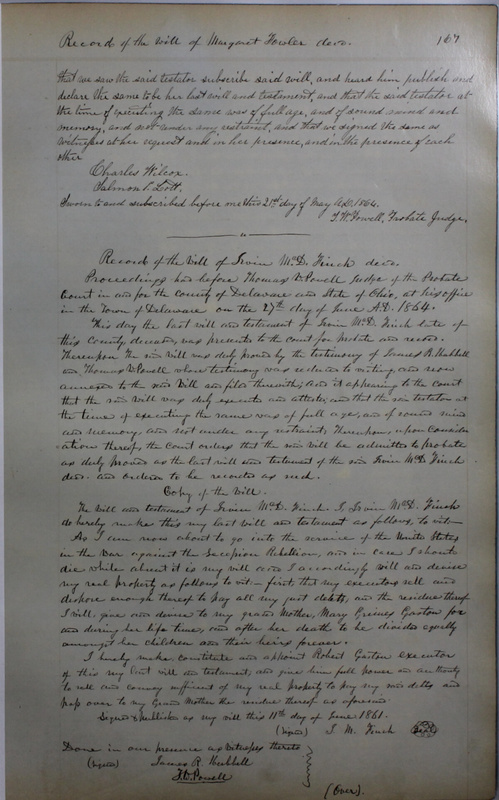 Record of the Will of Margaret Fowler decd. 167
that we saw the said testator subscribe said will, and heard him publish and
declare the same to be her last will and testament, and that the said testator at
the time of executing the same was of full age, and of sound mind and
memory, and not under any restraint, and that we signed the same as
witnesses at her request and in her presence, and in the presence of each
other
Charles Wilcox.
Salmon P. Lott.
Sworn to and subscribed before me this 21st day of May A.D. 1864.
T.W. Powell, Probate Judge.
Record of the Will of Irvin McD. Finch decd.
Proceedings had before Thomas W Powell Judge of the Probate
Court in and for the County of Delaware and State of Ohio, at his office
in the Town of Delaware on the 27th day of June A.D. 1864.
This day the last will and testament of Irvin McD. Finch late of
this County deceased, was presented to the Court for Probate and record.
Thereupon the said Will was duly proved by the testimony of James R. Hubbell
and Thomas W Powell whose testimony was reduced to writing, and now
annexed to the said Will and filed therewith; and it appearing to the court
that the said Will was duly executed and attested, and that the said testator at
the time of executing the same was of full age, and of sound mind
and memory, and not under any restraint. Thereupon, upon consider
ation thereof, the Court orders that the said will be admitted to probate
as duly proved as the last will and testament of the said Irvin McD. Finch
decd. and ordered to be recorded as such.
Copy of the Will.
The Will and testament of Irvin McD. Finch. I, Irvin McD. Finch
do hereby make this my last will and testament as follows, to wit—
As I am now about to go into the service of the United States
in the War against the Secession Rebellion, and in case I should
die while absent it is my will and I accordingly will and devise
my real property as follows to wit— first, that my executor sell and
dispose enough thereof to pay all my just debts, and the residue thereof
I will, give and devise to my grand Mother, Mary Gaston for
and during her life time, and after her death to be divided equally
amongst her children and their heirs forever.
I hereby make constitute and appoint Robert Gaston executor
of this my last will and testament, and give him full power and authority
to sell and convey sufficient of my real property to pay my said debts and
pass over to my Grand Mother the residue thereof as aforesaid.
Signed & Published as my will this 11th day of June 1861.
(signed) I. M. Finch Seal
Done in our presence as witnesses thereto
(signed) James R. Hubbell
T.W. Powell
(Over).